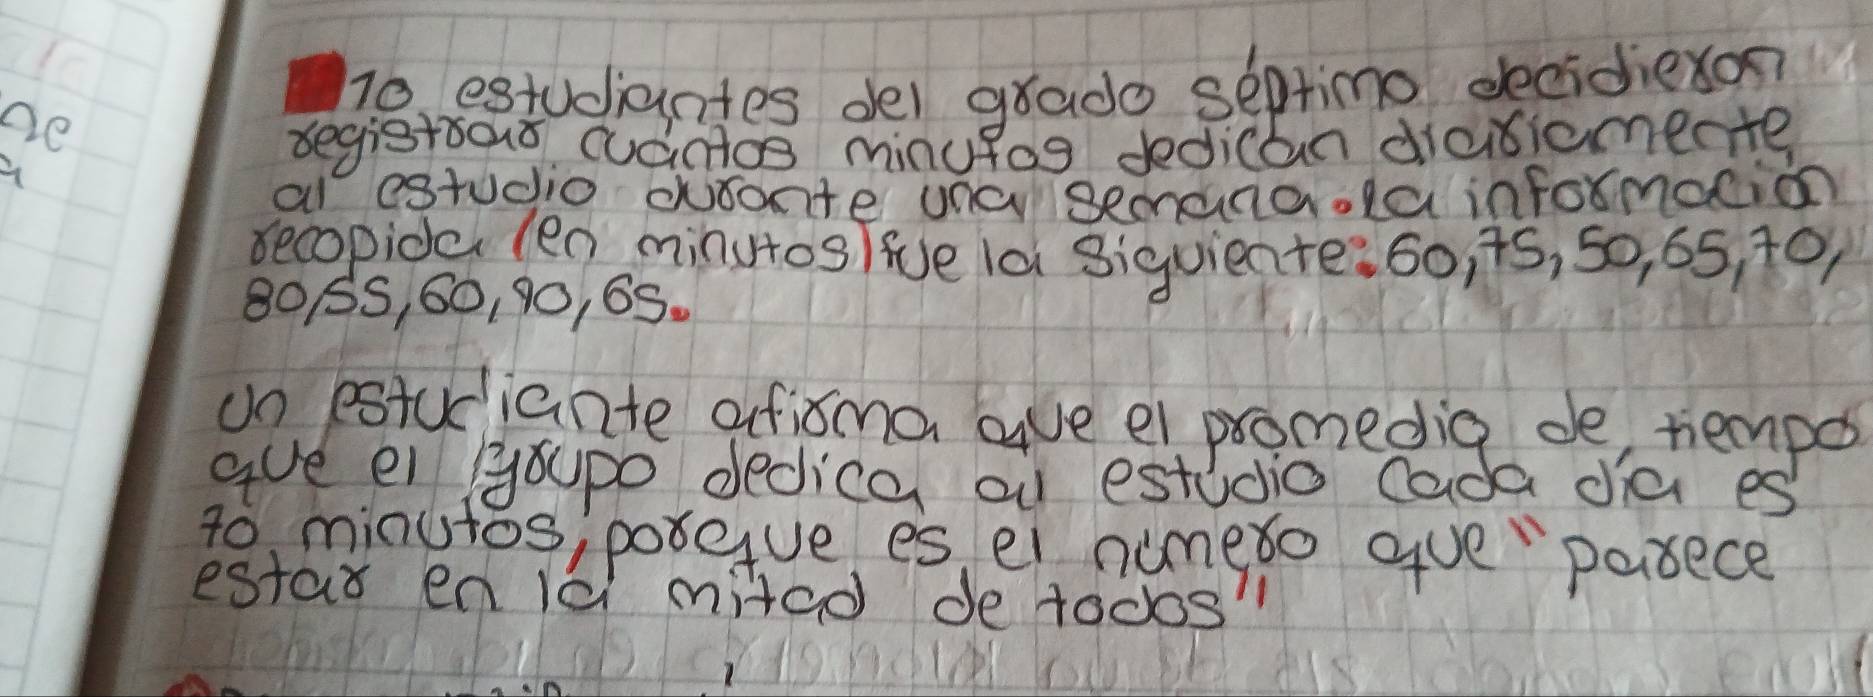 10 estudiantes del grado séptimo decidieron
registrar cuántos minutos dedican diariamente
al estudio durante una semana. la información
recopida (en minutos) fue la siguiente: 60, 75, 50, 65, 70,
80, 55, 60, 90, 65.
un estudiante afirma que el promedio de tiempo
que el grupo dedica al estudio cada día es
70 minutos, porque es el número que "parece
estar en la mitad de todos"